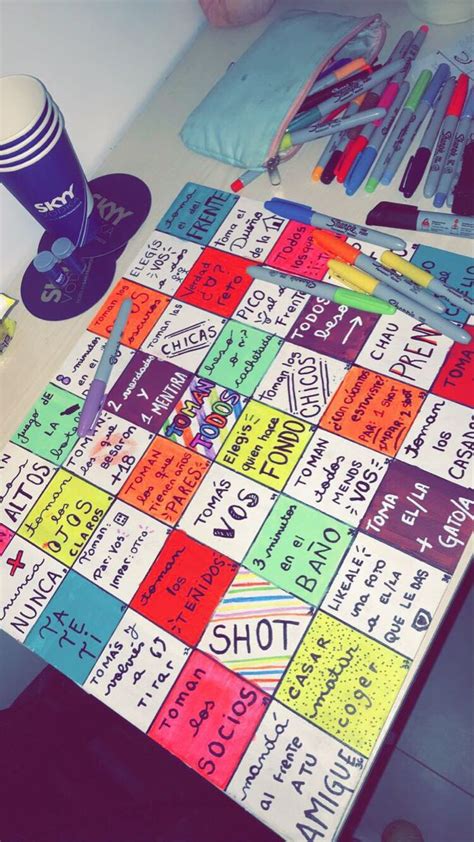 SKYY
SKYY
toma
el del
FRENTE
toma el
Dueño
de la
ELEGÍS
VOS
Todos
los que
Verdad
o
reto
PICO
al
Frente
TODOS
beso
CHAU
PREN
TOMA
toman los
OJOS
OSCUROS
toman las
CHICAS
beso
o
cachetada
toman los
CHICOS
minutos
en el
2 verdades
Y
1 MENTIRA
TOMAN
TODOS
Elegís
quien hace
FONDO
PAR: 1 SHOT
IMPAR 2
toman
los
CASA
juego de
LA
toman
los que
besaron
+18
TOMAN
los que
tienen años
PARES
TOMAN
todos
MENOS
VOS
TOMA
EL/LA
+
GATO/A
ALTOS
toman los
OJOS
CLAROS
TOMÁS
VOS
3 minutos
en el
BAÑO
NUNCA
Toman:
Par: VOS
impar: otro
toman
los
TEÑIDOS
LIKEALÉ
una FOTO
a EL/LA
QUE LE DAS
TA
TE
TI
TOMÁS
y
volvés a
TIRAR
SHOT
CASAR
matar
coger
Toman
los
SOCIOS
mandá
al FRENTE
A TU
AMIGUE